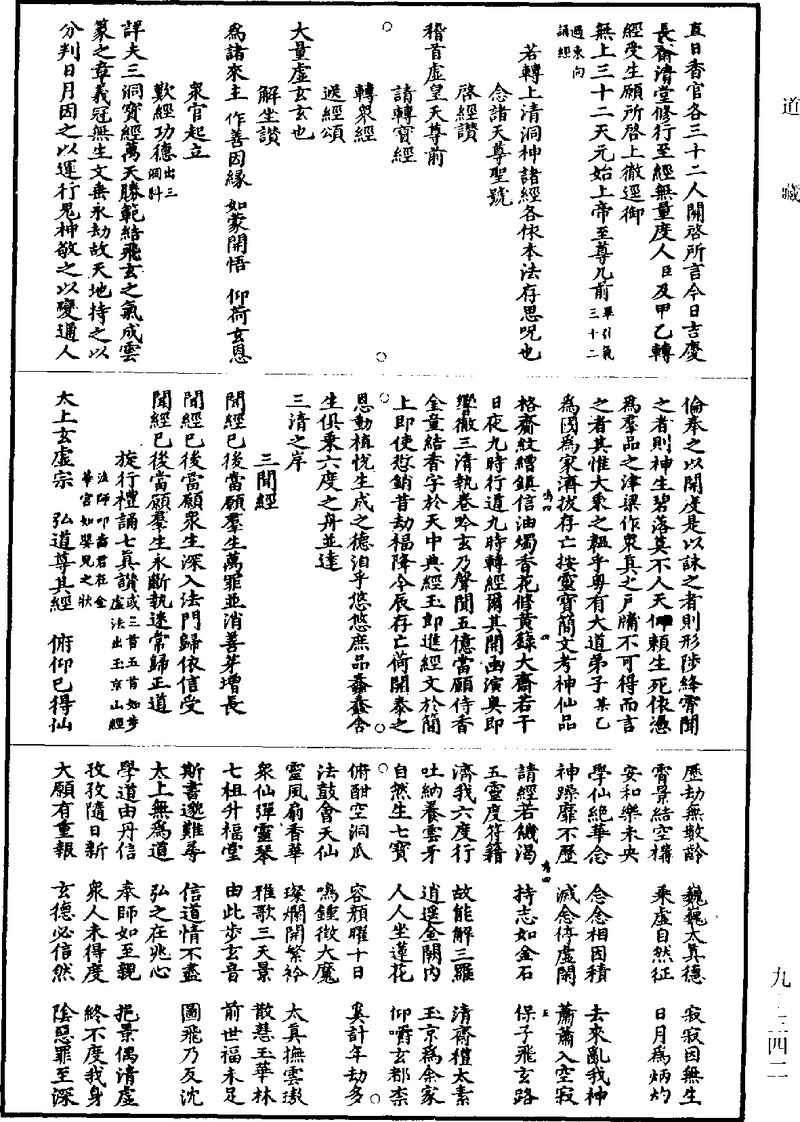 道藏
直日香官各三十二人開啓所言今日吉慶
長齋清堂修行至經無量度人臣及甲乙轉
經受生願所啓上徹逕御
無上三十二天元始上帝至尊几前畢引氣三十二
過東向
誦經
若轉上清洞神諸經各依本法存思呪也
念諸天尊聖號
啓經讚
稽首虛皇天尊前
請轉寶經
轉衆經
送經頌
大量虛玄玄也
解坐讚
為諸來主 作善因緣 如蒙開悟 仰荷玄恩
衆官起立
歎經功德出三洞科
詳夫三洞寶經萬天勝範結飛玄之氣成雲
篆之章義冠無生文垂永劫故天地持之以
分判日月因之以運行鬼神敬之以變通人
倫奉之以開度是以詠之者則形陟絳霄聞
之者則神生碧落莫不人天仰賴生死依憑
為羣品之津梁作衆真之戶牖不可得而言
之者其惟大乘之軀乎粵有大道弟子某乙
為國為家濟拔存亡按靈寶簡文考神仙品
格齋紋繒鎮信油燭香花修黃籙大齋若干
日夜九時行道九時轉經爾其開函演奧即
響徹三清執卷吟玄乃聲聞五億當願侍香
金童結香字於天中典經玉郎進經文於簡
上即使愆銷昔劫福降今辰存亡荷開泰之
恩動植悅生成之德洎乎悠悠庶品蠢蠢含
生俱乘六度之舟並達
三清之岸
三聞經
聞經已後當願羣生萬罪並消善芽增長
聞經已後當願衆生深入法門歸依信受
聞經已後當願羣生永斷執迷常歸正道
旋行禮誦七真讚或三首五首如步虛法出玉京山經
法師叩齒君在金
華宮如嬰兒之狀
太上玄虛宗 弘道尊其經 俯仰已得仙
歷劫無數齡 巍巍太真德 寂寂因無生
霄景結空構 乘虛自然征 日月為炳灼
安和樂未央 念念相因積 去來亂我神
學仙絕華念 滅念停虛閑 蕭蕭入空寂
神躁靡不歷
請經若饑渴 持志如金石 保子飛玄路
五靈度符籍
濟我六度行 故能解三羅 清齋禮太素
吐納養雲牙 逍遥金闕內 玉京為余家
自然生七寶 人人坐蓮花 仰嚼玄都柰
俯酣空洞瓜 容顏曜十日 奚計年劫多
法鼓會天仙 鳴鍾徵大魔
靈風扇香華 璨爛開繁衿 太真撫雲璈
衆仙彈靈琴 雅歌三天景 散慧玉華林
七祖升福堂 由此步玄音 前世福未足
斯書邈難尋 信道情不盡 圖飛乃反沈
太上無為道 弘之在兆心
學道由丹信 奉師如至親 挹景偶清虛
孜孜隨日新 衆人未得度 終不度我身
大願有重報 玄德必信然 陰惡罪至深
九·三四二